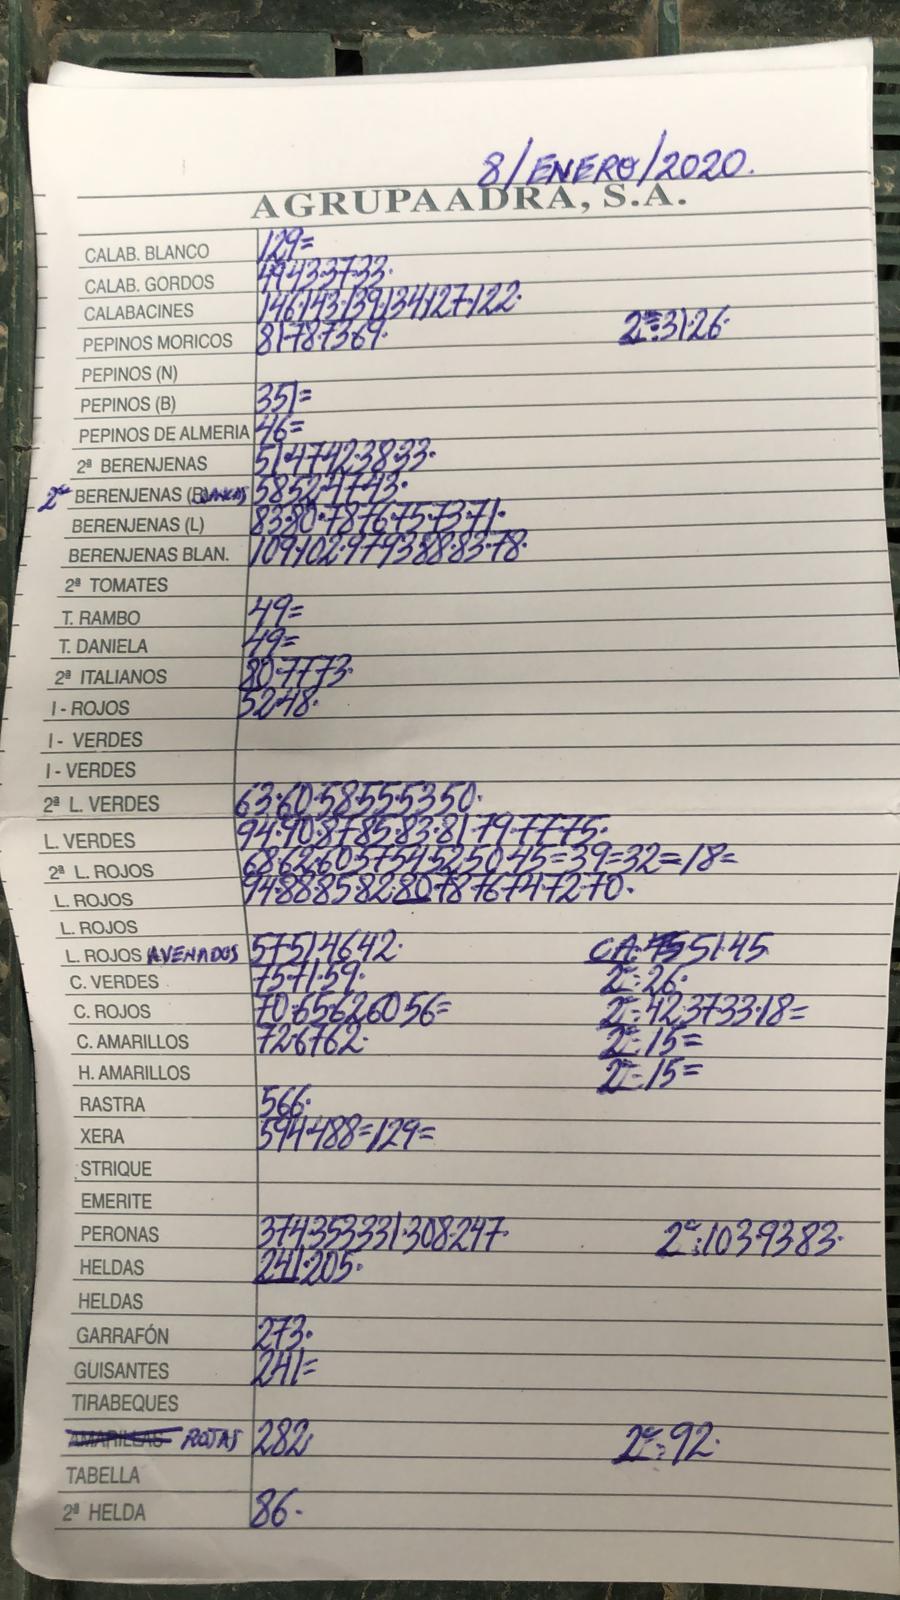 8/ENERO/2020.
AGRUPAADRA, S.A.
CALAB. BLANCO 129=
CALAB. GORDOS 49·43·37·33·
CALABACINES 146·143·139·134·127·122·
PEPINOS MORICOS 81·78·73·69· 2ª:31·26·
PEPINOS (N)
PEPINOS (B) 351=
PEPINOS DE ALMERIA 46=
2ª BERENJENAS 51·47·42·38·33·
2ª BERENJENAS (BLANCAS) 58·52·47·43·
BERENJENAS (L) 83·80·78·76·75·73·71·
BERENJENAS BLAN. 109·102·97·93·88·83·78·
2ª TOMATES
T. RAMBO 49=
T. DANIELA 49=
2ª ITALIANOS 80·77·73·
I - ROJOS 52·48·
I - VERDES
I - VERDES
2ª L. VERDES 63·60·58·55·53·50·
L. VERDES 94·90·87·85·83·81·79·77·75·
2ª L. ROJOS 68·62·60·57·54·52·50·45=39=32=18=
L. ROJOS 94·88·85·82·80·78·76·74·72·70·
L. ROJOS
L. ROJOS AVENADOS 57·51·46·42· CA· 55·51·45
C. VERDES 75·71·59· 2ª:26·
C. ROJOS 70·65·62·60·56= 2ª:42·37·33·18=
C. AMARILLOS 72·67·62· 2ª:15=
H. AMARILLOS 2ª:15=
RASTRA 566·
XERA 594·488=129=
STRIQUE
EMERITE
PERONAS 374·353·331·308·247· 2ª:103·93·83·
HELDAS 241·205·
HELDAS
GARRAFÓN 273·
GUISANTES 241=
TIRABEQUES
AMARILLAS ROJAS 282· 2ª:92·
TABELLA
2ª HELDA 86·